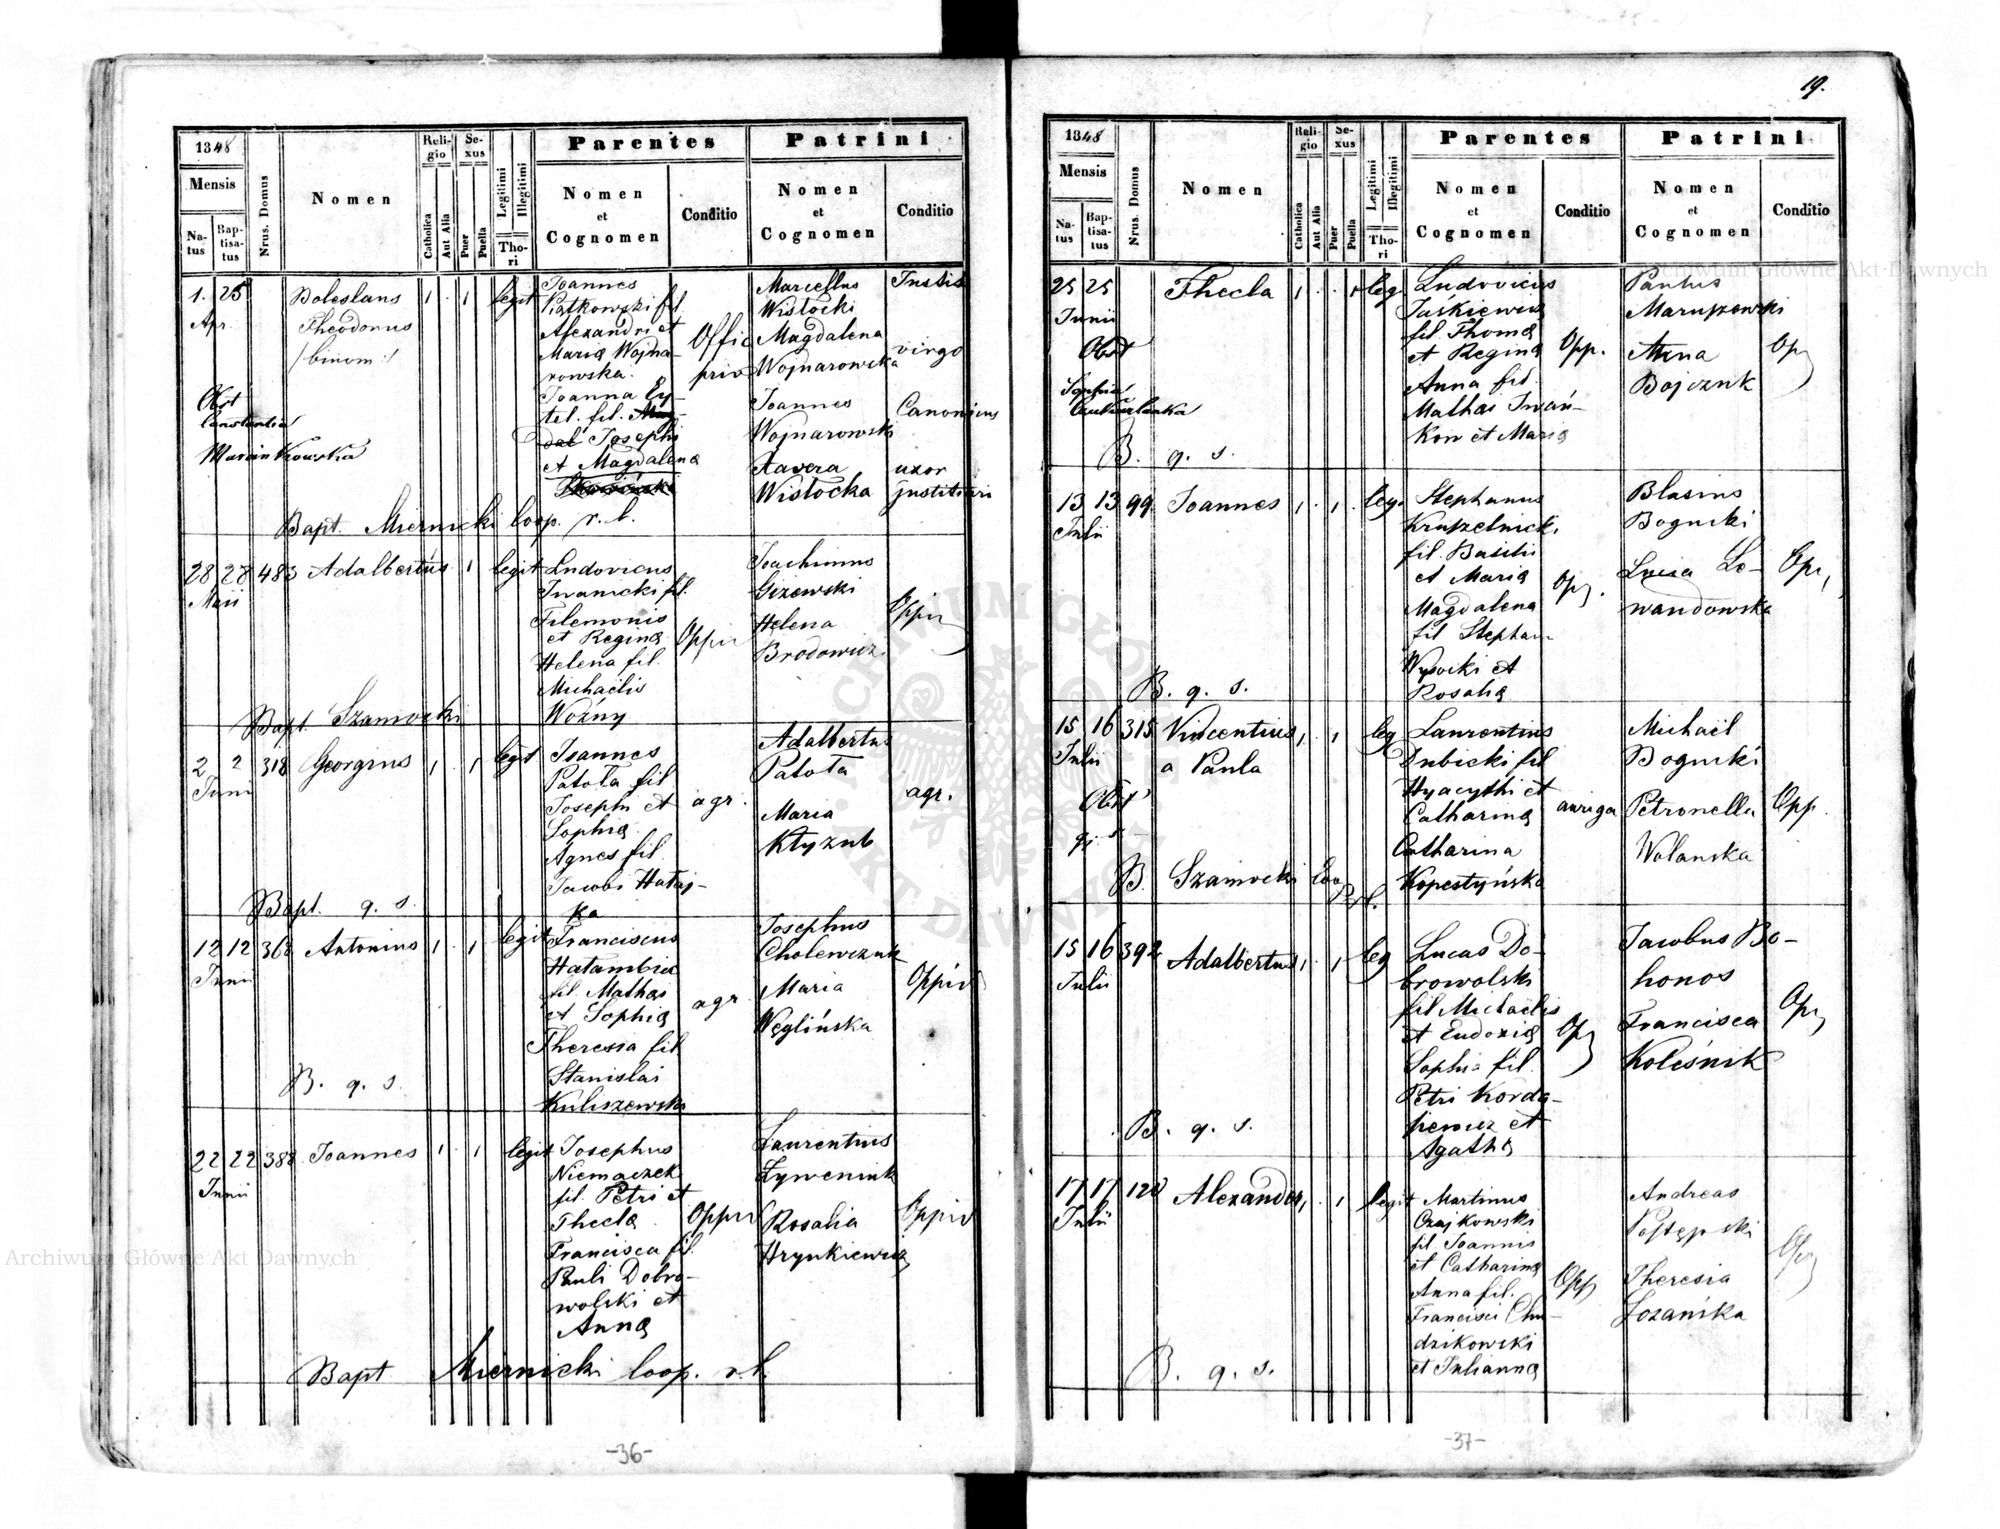 19.
1848
Mensis
Natus
Baptisatus
Nrus. Domus
Nomen
Religio
Catholica
Aut Alia
Sexus
Puer
Puella
Legitimi
Illegitimi
Thori
Parentes
Nomen
et
Cognomen
Conditio
Patrini
Nomen
et
Cognomen
Conditio
1. 25
Apr.
Boleslaus
Theodorus
/binom:/
1 1 legit
Joannes
Piątkowski fil
Alexandri et
Maria Wojna-
rowska.
Joanna
tel. fil.
Josephi
et Magdalena
Offic
priv
Marcellus
Wisłocki
Magdalena
Wojnarowska
Joannes
Wojnarowski
Xavera
Wisłocka
virgo
Canonicus
uxor
justitiari
Obst
Constantia
Marcinkowska
Bapt. Miernicki Coop. r. l.
28 28 483 Adalbertus 1 legit
Maii
Ludovicus
Iwanicki fil.
Filemonis
et Regina
Helena fil.
Michaëlis
Woźny
Oppid
Joachimus
Giżewski
Helena
Brodowicz
Oppid
Bapt. Szamocki
2 2 318 Georgius 1 1 legit
Junii
Joannes
Patoła fil
Josephi et
Sophia
Agnes fil.
Jacobi Hataj-
ka
agr.
Adalbertus
Patoła
Maria
Kłyzub
agr.
Bapt. q. s.
12 12 368 Antonius 1 1 legit
Junii
Franciscus
Hatambia
fil. Mathai
et Sophia
Theresia fil
Stanislai
Kuliszewska
agr
Josephus
Cholewczuk
Maria
Węglińska
Oppid
B. q. s.
22 22 388 Joannes 1 1 legit
Junii
Josephus
Niemaczek
fil. Petri et
Thecla
Francisca fil.
Pauli Dobro-
wolski et
Anna
Oppid
Laurentius
Żyweniuk
Rosalia
Hrynkiewicz
Oppid
Bapt Miernicki Coop. r. l.
-36-
1848
Mensis
Natus
Baptisatus
Nrus. Domus
Nomen
Religio
Catholica
Aut Alia
Sexus
Puer
Puella
Legitimi
Illegitimi
Thori
Parentes
Nomen
et
Cognomen
Conditio
Patrini
Nomen
et
Cognomen
Conditio
25 25 Thecla 1 1 leg
Junii
Obst
Sophia
Ludovicus
Jaśkiewicz
fil. Thoma
et Regina
Anna fil.
Mathai Iwań-
kow et Maria
Opp.
Paulus
Maruszewski
Anna
Bojczuk
Op
B. q. s.
13 13 99 Joannes 1 1 leg.
Julii
Stephanus
Kruszelnicki
fil. Basilii
et Maria
Magdalena
fil Stephani
Wysocki et
Rosalia
Opp.
Blasius
Bogucki
Lucia Le-
wandowska
Opp
B. q. s.
15 16 315 Vincentius 1 1 leg
Julii a Paula
Obst
q. s.
Laurentius
Dubicki fil
Hyacythi et
Catharina
Catharina
Kopestyńska
auriga
Michaël
Bogucki
Petronella
Wolanska
Opp.
B. Szamocki Coop r. l.
15 16 392 Adalbertus 1 1 leg
Julii
Lucas Do-
browolski
fil Michaëlis
et Eudoxia
Sophia fil.
Petri Korda-
siewicz et
Agatha
Opp
Jacobus Bo-
honos
Francisca
Kolesnik
Opp
B. q. s.
17 17 128 Alexander 1 1 legit
Julii
Martinus
Czajkowski
fil Joannis
et Catharina
Anna fil.
Francisci Chu-
dzikowski
et Julianna
Opp
Andreas
Postępski
Theresia
Łozańska
Opp
B. q. s.
-37-
Archiwum Główne Akt Dawnych
Archiwum Główne Akt Dawnych
ARCHIWUM GŁÓWNE AKT DAWNYCH